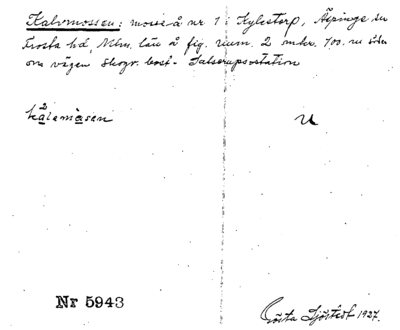 Kalvmossen: mosse å nr 1 i Kylstorp, Äspinge sn
Frosta hd, Mlm. län å fig. rum. 2 omkr. 700. m söder
om vägen Skogr. bost - Satserupsstation
kålamåsen u
Nr 5943 Gösta Sjöstedt 1927.